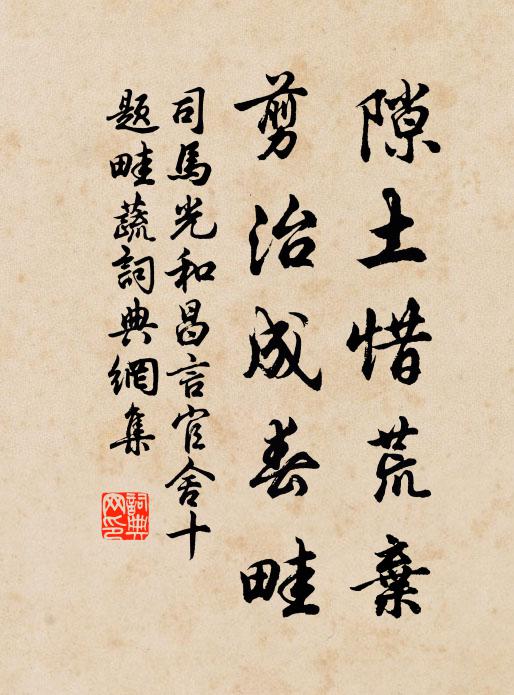 隙土惜荒棄
剪治成春畦
司馬光和昌言官舍十
題畦蔬詞典網集
詞典
网印